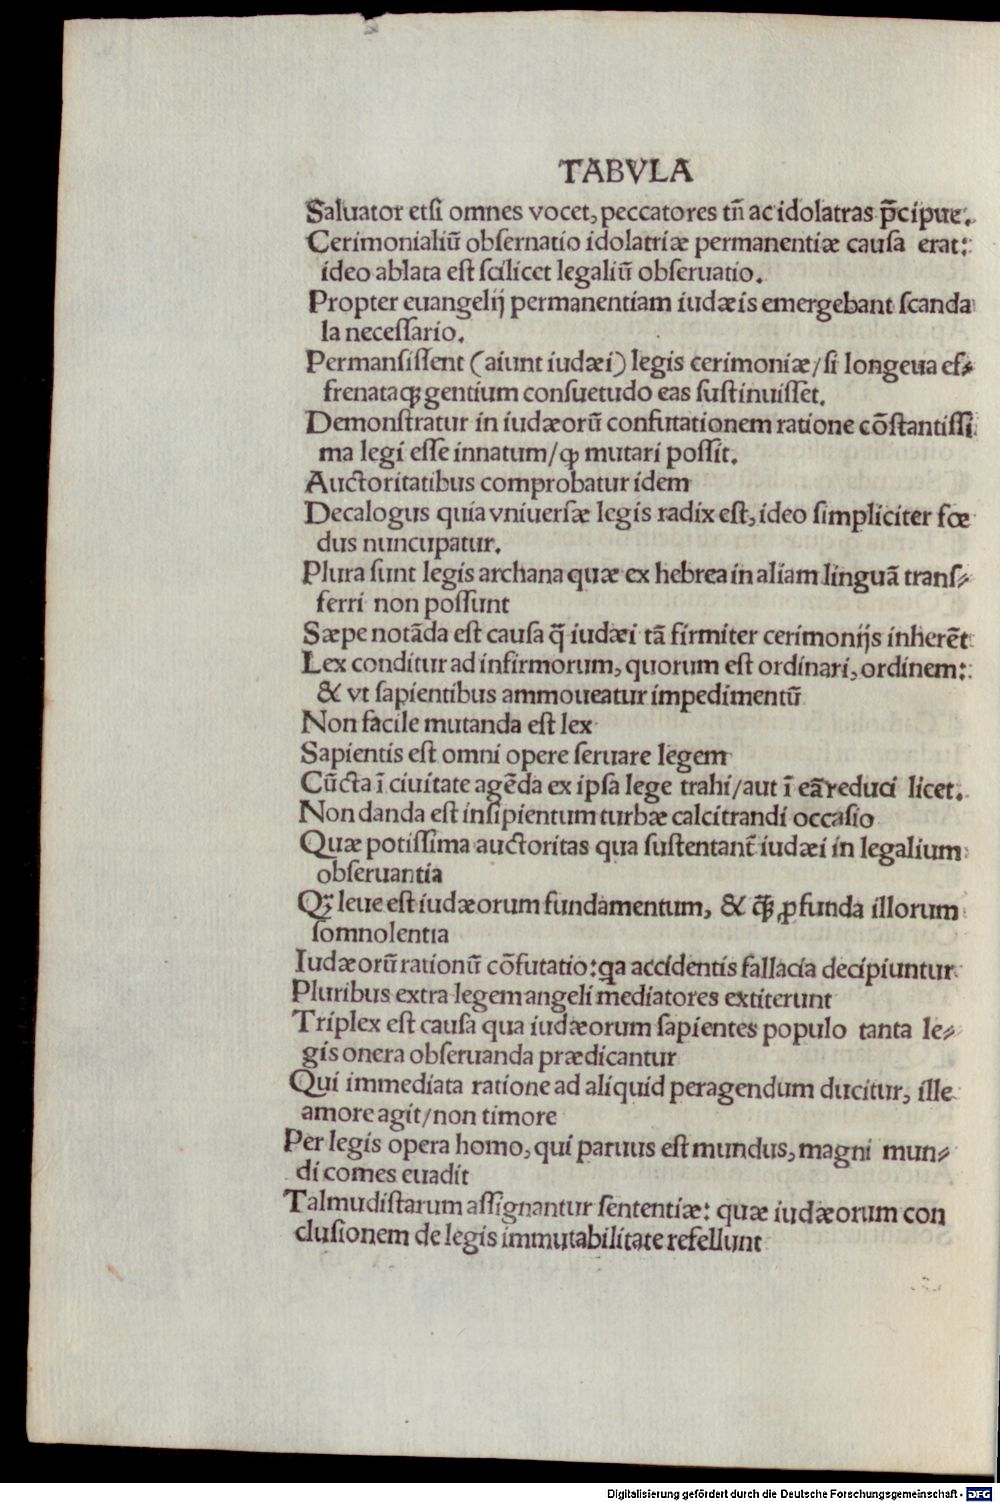 TABVLA
Saluator etſi omnes vocet, peccatores tñ ac idolatras p̄cipue.
Cerimonialiū obſernatio idolatriæ permanentiæ cauſa erat:
ideo ablata eſt ſcilicet legaliū obſeruatio.
Propter euangelij permanentiam iudæis emergebant ſcanda
la neceſſario.
Permansiſſent (aiunt iudæi) legis cerimoniæ/ſi longeua ef⸗
frenataqꝫ gentium conſuetudo eas ſuſtinuiſſet.
Demonſtratur in iudæorū confutationem ratione cōſtantiſſi
ma legi eſſe innatum/ꝙ mutari poſſit.
Auctoritatibus comprobatur idem
Decalogus quia vniuerſæ legis radix eſt, ideo ſimpliciter fœ
dus nuncupatur.
Plura ſunt legis archana quæ ex hebrea in aliam linguā tranſ⸗
ferri non poſſunt
Sæpe notāda eſt cauſa q̄ iudæi tā firmiter cerimonijs inherēt
Lex conditur ad infirmorum, quorum eſt ordinari, ordinem:
& vt ſapientibus ammoueatur impedimentū
Non facile mutanda eſt lex
Sapientis eſt omni opere ſeruare legem
Cūcta ī ciuitate agēda ex ipſa lege trahi/aut ī eā reduci licet.
Non danda eſt inſipientum turbæ calcitrandi occaſio
Quæ potiſſima auctoritas qua ſuſtentant̄ iudæi in legalium
obſeruantia
Qꝫ leue eſt iudæorum fundamentum, & q̄ꝫ ꝓfunda illorum
ſomnolentia
Iudæorū rationū cōfutatio: qa accidentis fallacia decipiuntur
Pluribus extra legem angeli mediatores extiterunt
Triplex eſt cauſa qua iudæorum ſapientes populo tanta le⸗
gis onera obſeruanda prædicantur
Qui immediata ratione ad aliquid peragendum ducitur, ille
amore agit/non timore
Per legis opera homo, qui paruus eſt mundus, magni mun⸗
di comes euadit
Talmudiſtarum aſſignantur ſententiæ: quæ iudæorum con
cluſionem de legis immutabilitate refellunt
Digitalisierung gefördert durch die Deutsche Forschungsgemeinschaft - DFG